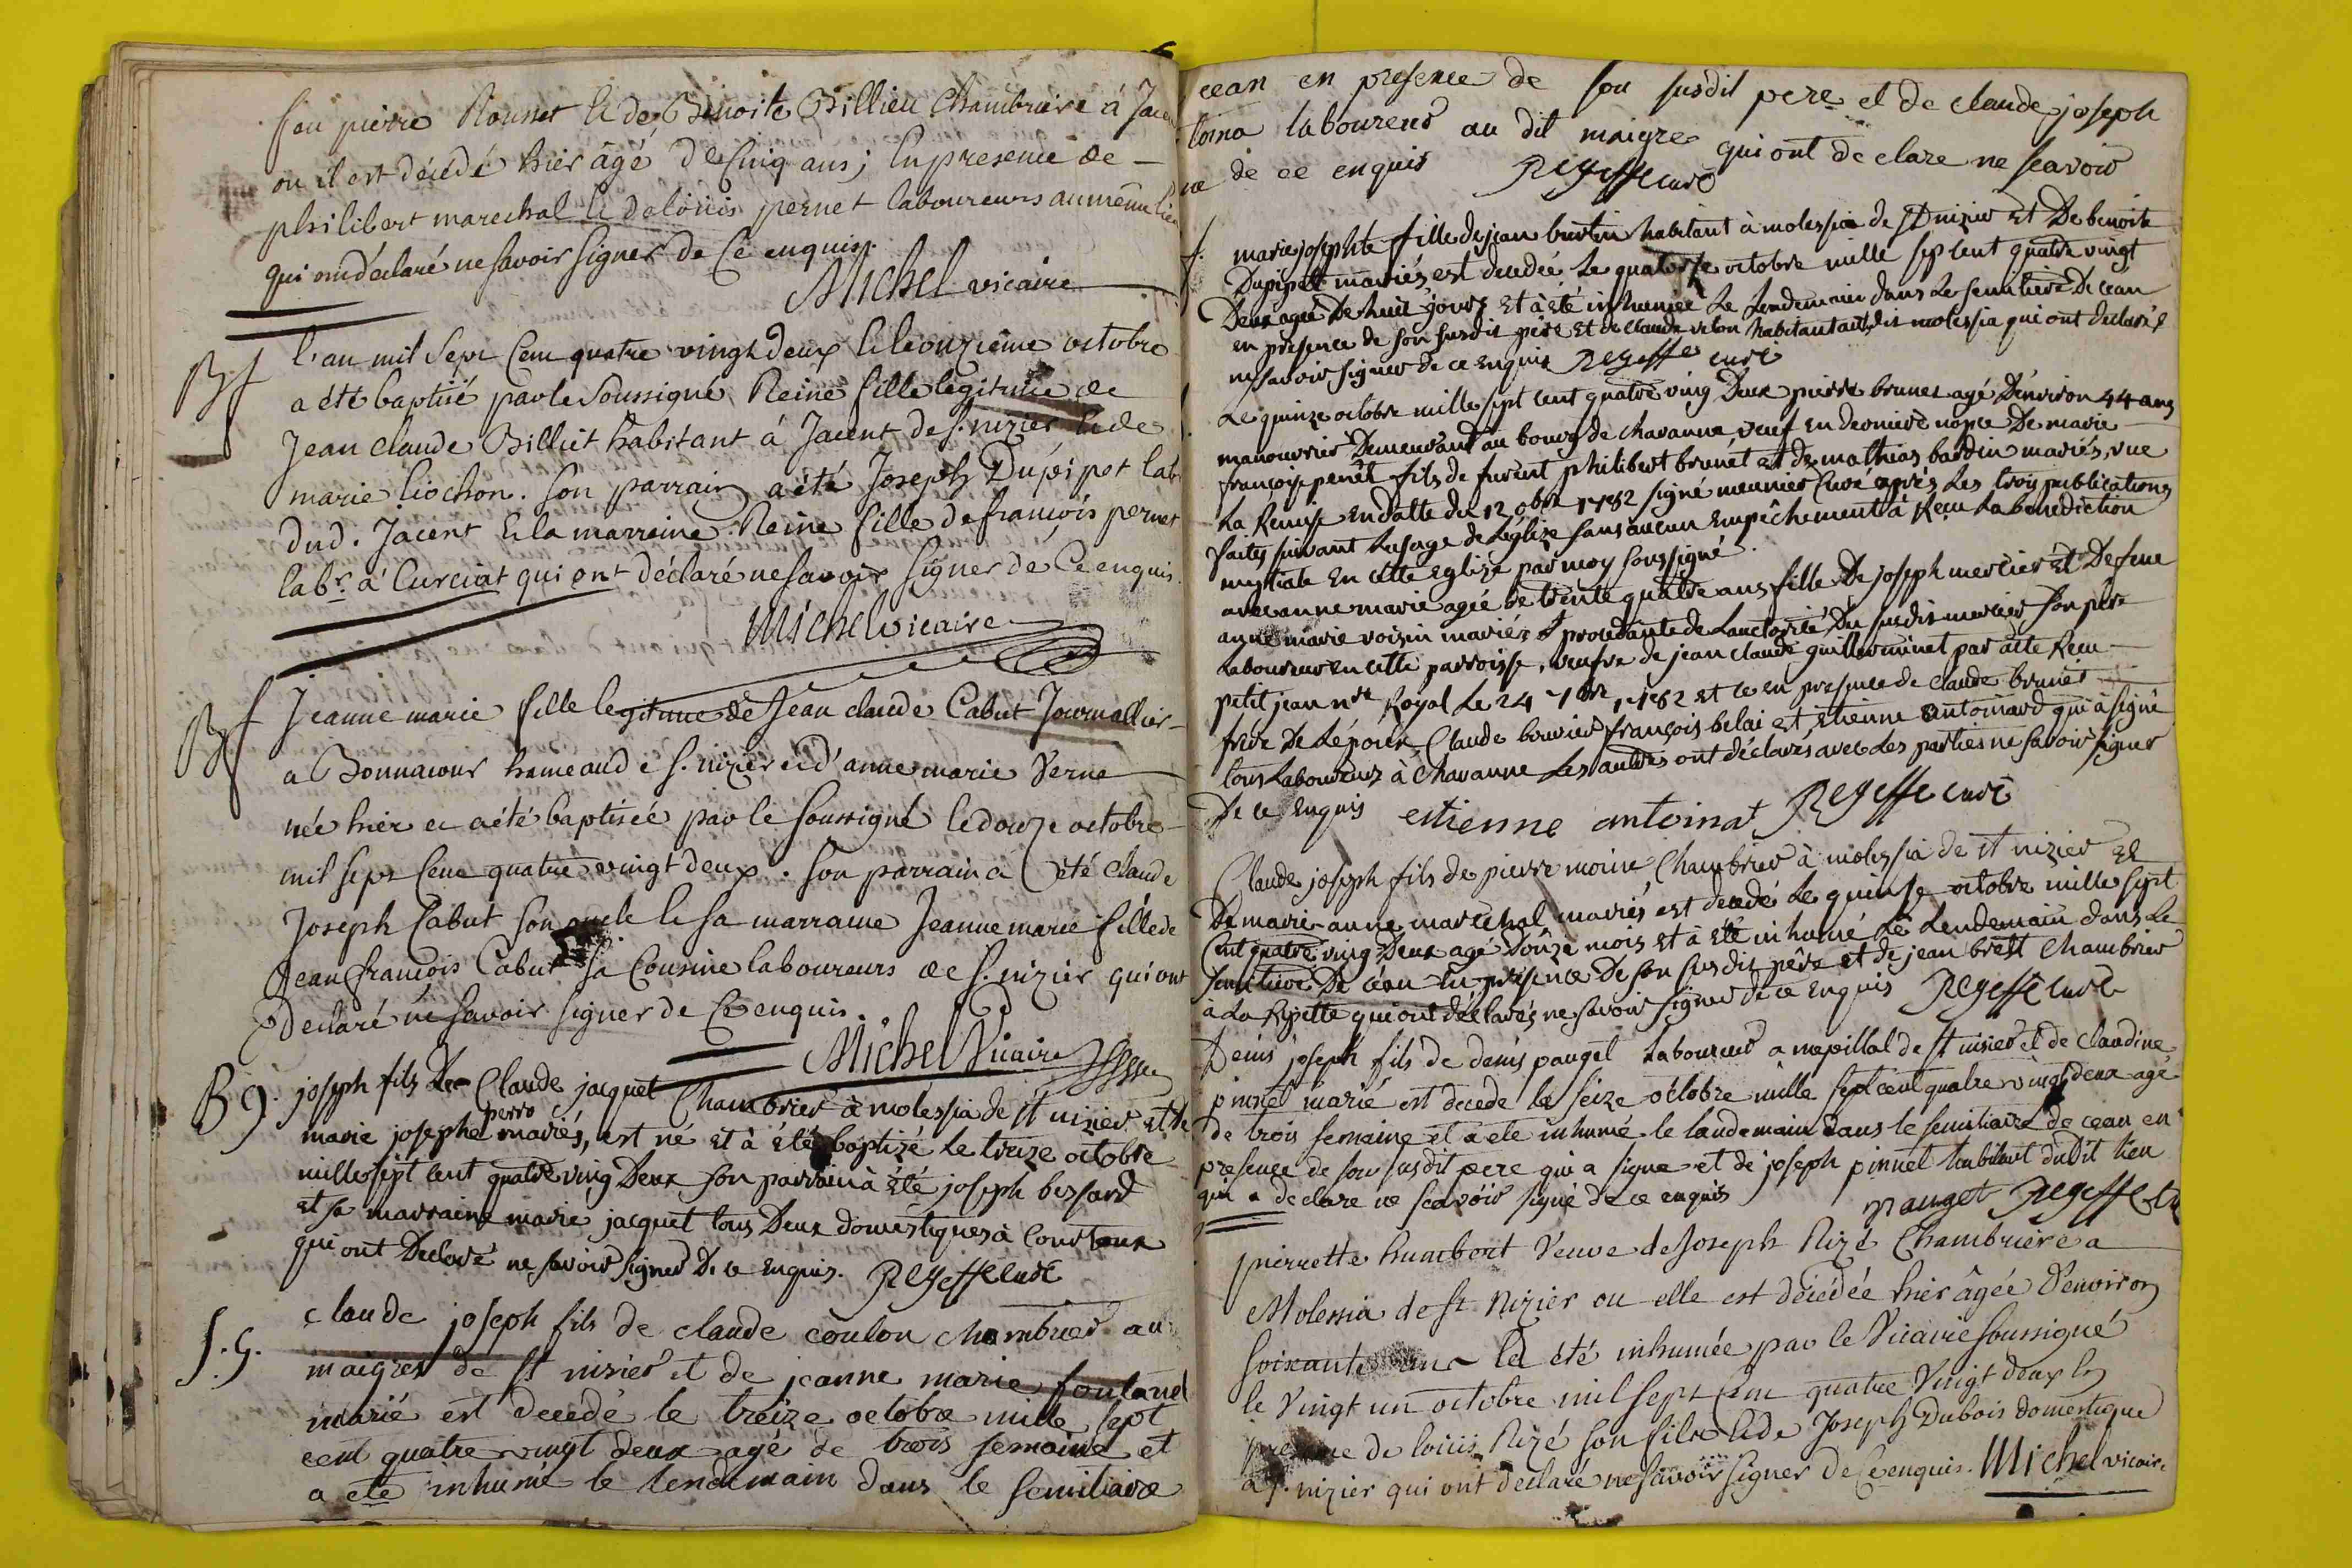 feu pierre Rousset & de Benoite Billieu Chambriere à Jacent
ou il est décédé hier âgé de Cinq ans; En presence de
philibert marechal & de loüis pernet laboureurs au même lieu
qui ont déclaré ne savoir signer de Ce enquis.
Michel vicaire
Bf
l'an mil Sept Cent quatre vingt deux & le onzieme octobre
a été baptisé par le Soussigné Reine fille legitime de
Jean claude Billiet habitant à Jacent de s. nizier & de
marie liochon. Son parrain a été Joseph Dupipet lab
dud. Jacent & la marreine Reine fille de francois pernet
labr. à Curciat qui ont déclaré ne savoir signer de Ce enquis.
Michel vicaire
Bf
Jeanne marie fille legitime de Jean claude Cabut Journallier
a Bonnacour hameau de s. nizier et d'anne marie Verne
née hier et a été baptisée par le Soussigné le douze octobre
mil sept Cent quatre vingt deux. Son parrain a été Claude
Joseph Cabut son oncle & sa marraine Jeanne marie fille de
Jean francois Cabut sa Cousine laboureurs de s. nizier qui ont
Declaré ne savoir signer de Ce enquis.
Michel Vicaire
B g.
joseph fils De Claude jacquet Chambrier à molessia de st nizier et de
marie josephe perro mariés, est né et à été baptizé Le treize octobre
mille sept cent quatre ving Deux son parrain à été joseph bessard
et sa marraine marie jacquet tous Deux domestiques à Courtoux
qui ont Declaré ne savoir signer De ce Enquis. Regeffe curé
S. G.
claude joseph fils de claude coulon chambrier au
maigres de st nisier et de jeanne marie foutanel
marié est decedé le treize octobre mille sept
cent quatre vingt deux agé de trois semaine et
a ete inhumé le lendemain dans le semitiaire
cean en presence de son susdit pere et de claude joseph
loina laboureur au dit maigre qui ont declare ne scavoir
de ce enquis Regeffe curé
f.
marie josephte fille de jean burtin habitant à molessia de st nizier et De benoite
Dupipet mariés est decedée Le quatorze octobre mille sept cent quatre vingt
Deux agée De huit jours et à été inhumée Le Lendemain dans Le semitiere De céan
en presence de son susdit père et de claude velon habitant audit molessia qui ont declaré
ne savoir signer de ce enquis Regeffe curé
Le quinze octobre mille sept cent quatre ving Deux pierre brunet agé D'environ 44 ans
manouvrier Demeurant au bourg de chavanne, veuf en derniere nopce De marie
françoise penêt fils de furent philibert brunet et de mathias bardin mariés, vue
La Remise En datte du 12 obre 1782 signé meunier Curé aprés Les trois publications
faites suivant Lusage de Léglize sans aucun Empêchement à Reçu La benediction
nuptiale En cette Eglize par moy soussigné.
avec anne marie agée De trente quatre ans fille De joseph mercier et De feue
anne marie voisin mariés & procedante de Lauctorité Du susdit mercier son père
Laboureur en cette parroisse, veufve de jean claude guillerminet par acte Recu
petit jean nre Royal Le 24 7bre 1782 et ce en presence de claude brunet
frère De Lépoux, Claude bouvier françois belai et Etienne antoinard qui à signé
tous Laboureurs à Chavanne Les autres ont déclarés avec Les parties ne savoir signer
De ce Enquis estienne antoinat Regeffe curé
Claude joseph fils de pierre moine Chambrier à molessia de st nizier et
De marie anne marechal mariés est decedé Le quinse octobre mille sept
Cent quatre ving Deux agé Douze mois et à été inhumé Le Lendemain dans Le
semitiere De céan En presence De son susdit père et de jean brest Chambrier
à La Ripette qui ont déclarés ne savoir signer de ce Enquis Regeffe curé
Denis joseph fils de denis pauget Laboureur a mepillat de st nisier et de claudine
pinnet marié est decede le seize octobre mille sept cent quatre vingt deux agé
de trois semaine et a ete inhumé le landemain dans le semitiaire de cean en
presence de son susdit pere qui a signe et de joseph pinnet habitant du dit lieu
qui a declare ne scavoir signé de ce enquis pauget Regeffe
pierrette humbert Veuve de Joseph Rizé Chambriere a
Molessia de st Nizier ou elle est décédée hier âgée d'environ
Soixante ans a été inhumée par le Vicaire soussigné
le Vingt un octobre mil sept Cent quatre Vingt deux En
presence de loüis Rizé son fils & de Joseph Dubois domestique
a s. nizier qui ont declaré ne savoir signer de Ce enquis. Michel vicaire